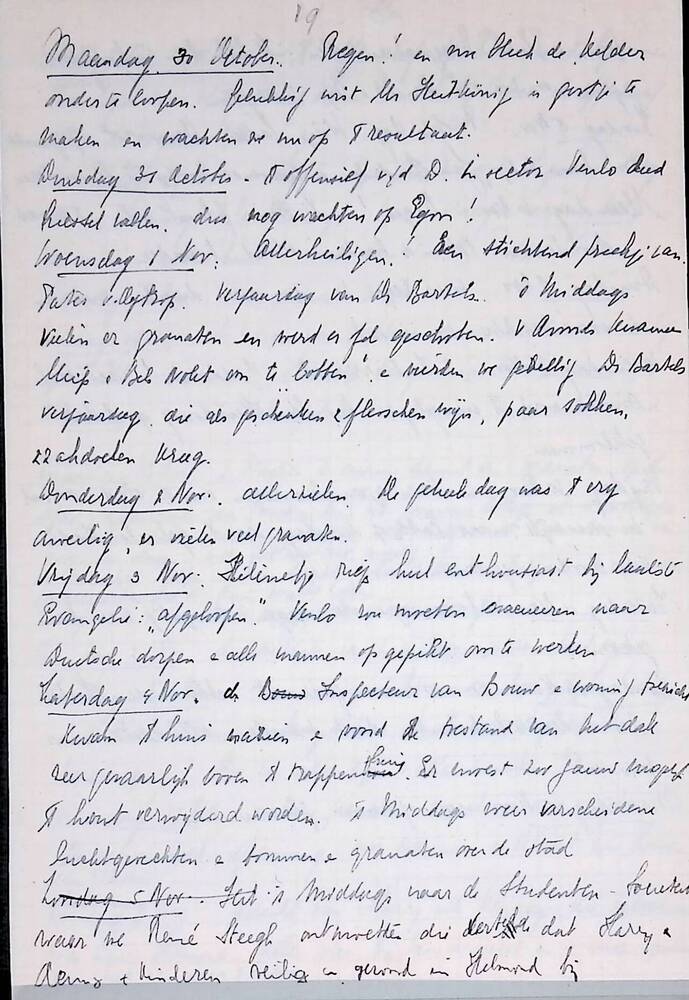 19
Maandag 30 October. Regen! en nu bleek de Kelder
onder te loopen. Gelukkig wist Mr in gootje te
maken en wachten we nu op 't resultaat.
Dinsdag 31 October - 't offensief v/d D. in sector Venlo deed
Kiessel vallen. dus nog wachten op Egon!
Woensdag 1 Nov: Allerheiligen! Een stichtend preekje van
Pater v. Verjaardag van Dr Bartels. 's Middags
vielen er granaten en werd er fel geschoten.
Bels Nolet om te "botten" e vierden we gezellig Dr Bartels
verjaardag die als geschenken 2 flesschen wijn, paar sokken,
22 kreeg.
Donderdag 2 Nov. allerzielen. De geheele dag was 't erg
onveilig, er vielen veel granaten.
Vrijdag 3 Nov: riep heel enthousiast bij laatste
Evangelie: "afgeloopen". Venlo zou moeten evacueeren naar
Duitsche dorpen e alle mannen opgepikt om te werken
Zaterdag 4 Nov. de Bouw Inspecteur van Bouw e woning toezicht
kwam 't huis e vond de toestand van het dak
zeer gevaarlijk boven 't trappenhuis. Er moest zoo gauw mogelijk
't hout verwijderd worden. 's Middags weer verscheidene
luchtgevechten e bommen e granaten over de stad
Zondag 5 Nov. 's Middags naar de Studenten-Societeit
waar we René Steegh ontmoetten die vertelde dat Harry e
e Kinderen veilig en gezond in Helmond bij